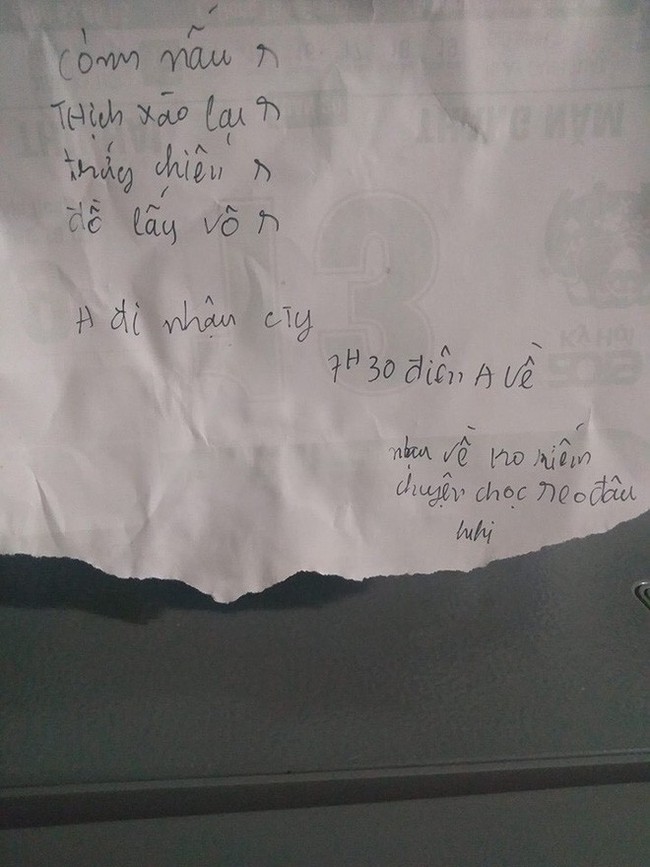 Cơm nấu r
Thịt xào lại r
trứng chiên r
đồ lấy vô r
A đi nhậu cty
7H30 điện A về
nhậu về ko kiếm
chuyện chọc reo đâu
hihi
THÁNG NĂM
13